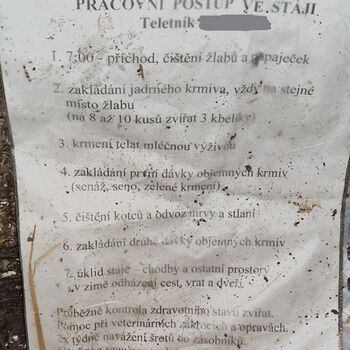 PRACOVNÍ POSTUP VE STÁJI
Teletník
1. 7:00 - příchod, čištění žlabů a napaječek
2. zakládání jadrného krmiva, vždy na stejné
místo žlabu
(na 8 až 10 kusů zvířat 3 kbelíky)
3. krmení telat mléčnou výživou
4. zakládání první dávky objemných krmiv
(senáž, seno, zelené krmení)
5. čištění kotců a odvoz mrvy a stlaní
6. zakládání druhé dávky objemných krmiv
7. úklid stáje - chodby a ostatní prostory
v zimě odházení cest, vrat a dveří.
Průběžně kontrola zdravotního stavu zvířat.
Pomoc při veterinárních zákrocích a opravách.
2x týdně navážení šrotů do zásobníků.